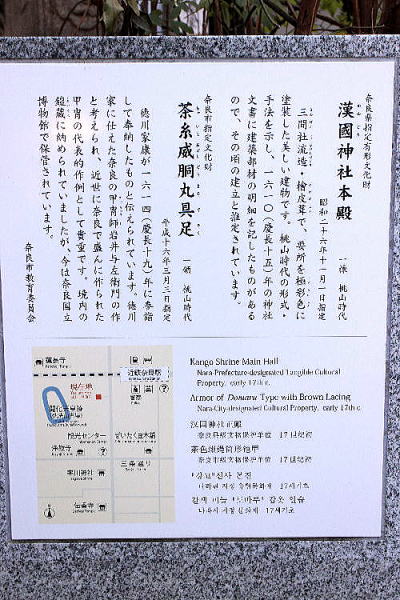 奈良県指定有形文化財
漢國神社本殿
一棟 桃山時代
昭和二十六年十一月一日指定
三間社流造・檜皮葺で、要所を極彩色に
塗装した美しい建物です。桃山時代の形式・
手法を示し、一六一〇(慶長十五)年の神社
文書に建築部材の明細を記したものがある
ので、その頃の建立と推定されています。
奈良市指定文化財
茶糸威胴丸具足
一領 桃山時代
平成十六年三月三日指定
徳川家康が一六一四(慶長十九)年に参詣
して奉納したものと伝えられています。徳川
家に仕えた奈良の甲冑師岩井与左衛門の作
と考えられ、近世に奈良で盛んに作られた
甲冑の代表的作例として貴重です。境内の
鎧蔵に納められていましたが、今は奈良国立
博物館で保管されています。
奈良市教育委員会
Kango Shrine Main Hall
Nara-Prefecture-designated Tangible Cultural
Property, early 17th c.
Armor of Domaru Type with Brown Lacing
Nara-City-designated Cultural Property, early 17th c.
汉国神社正殿
奈良县级文物保护单位 17世纪初
茶色线绳筒形铠甲
奈良市级文物保护单位 17世纪初
蓮長寺
近鉄奈良駅
現在地
開化天皇陵
観光センター
浄教寺
三条通り
率川神社
伝香寺